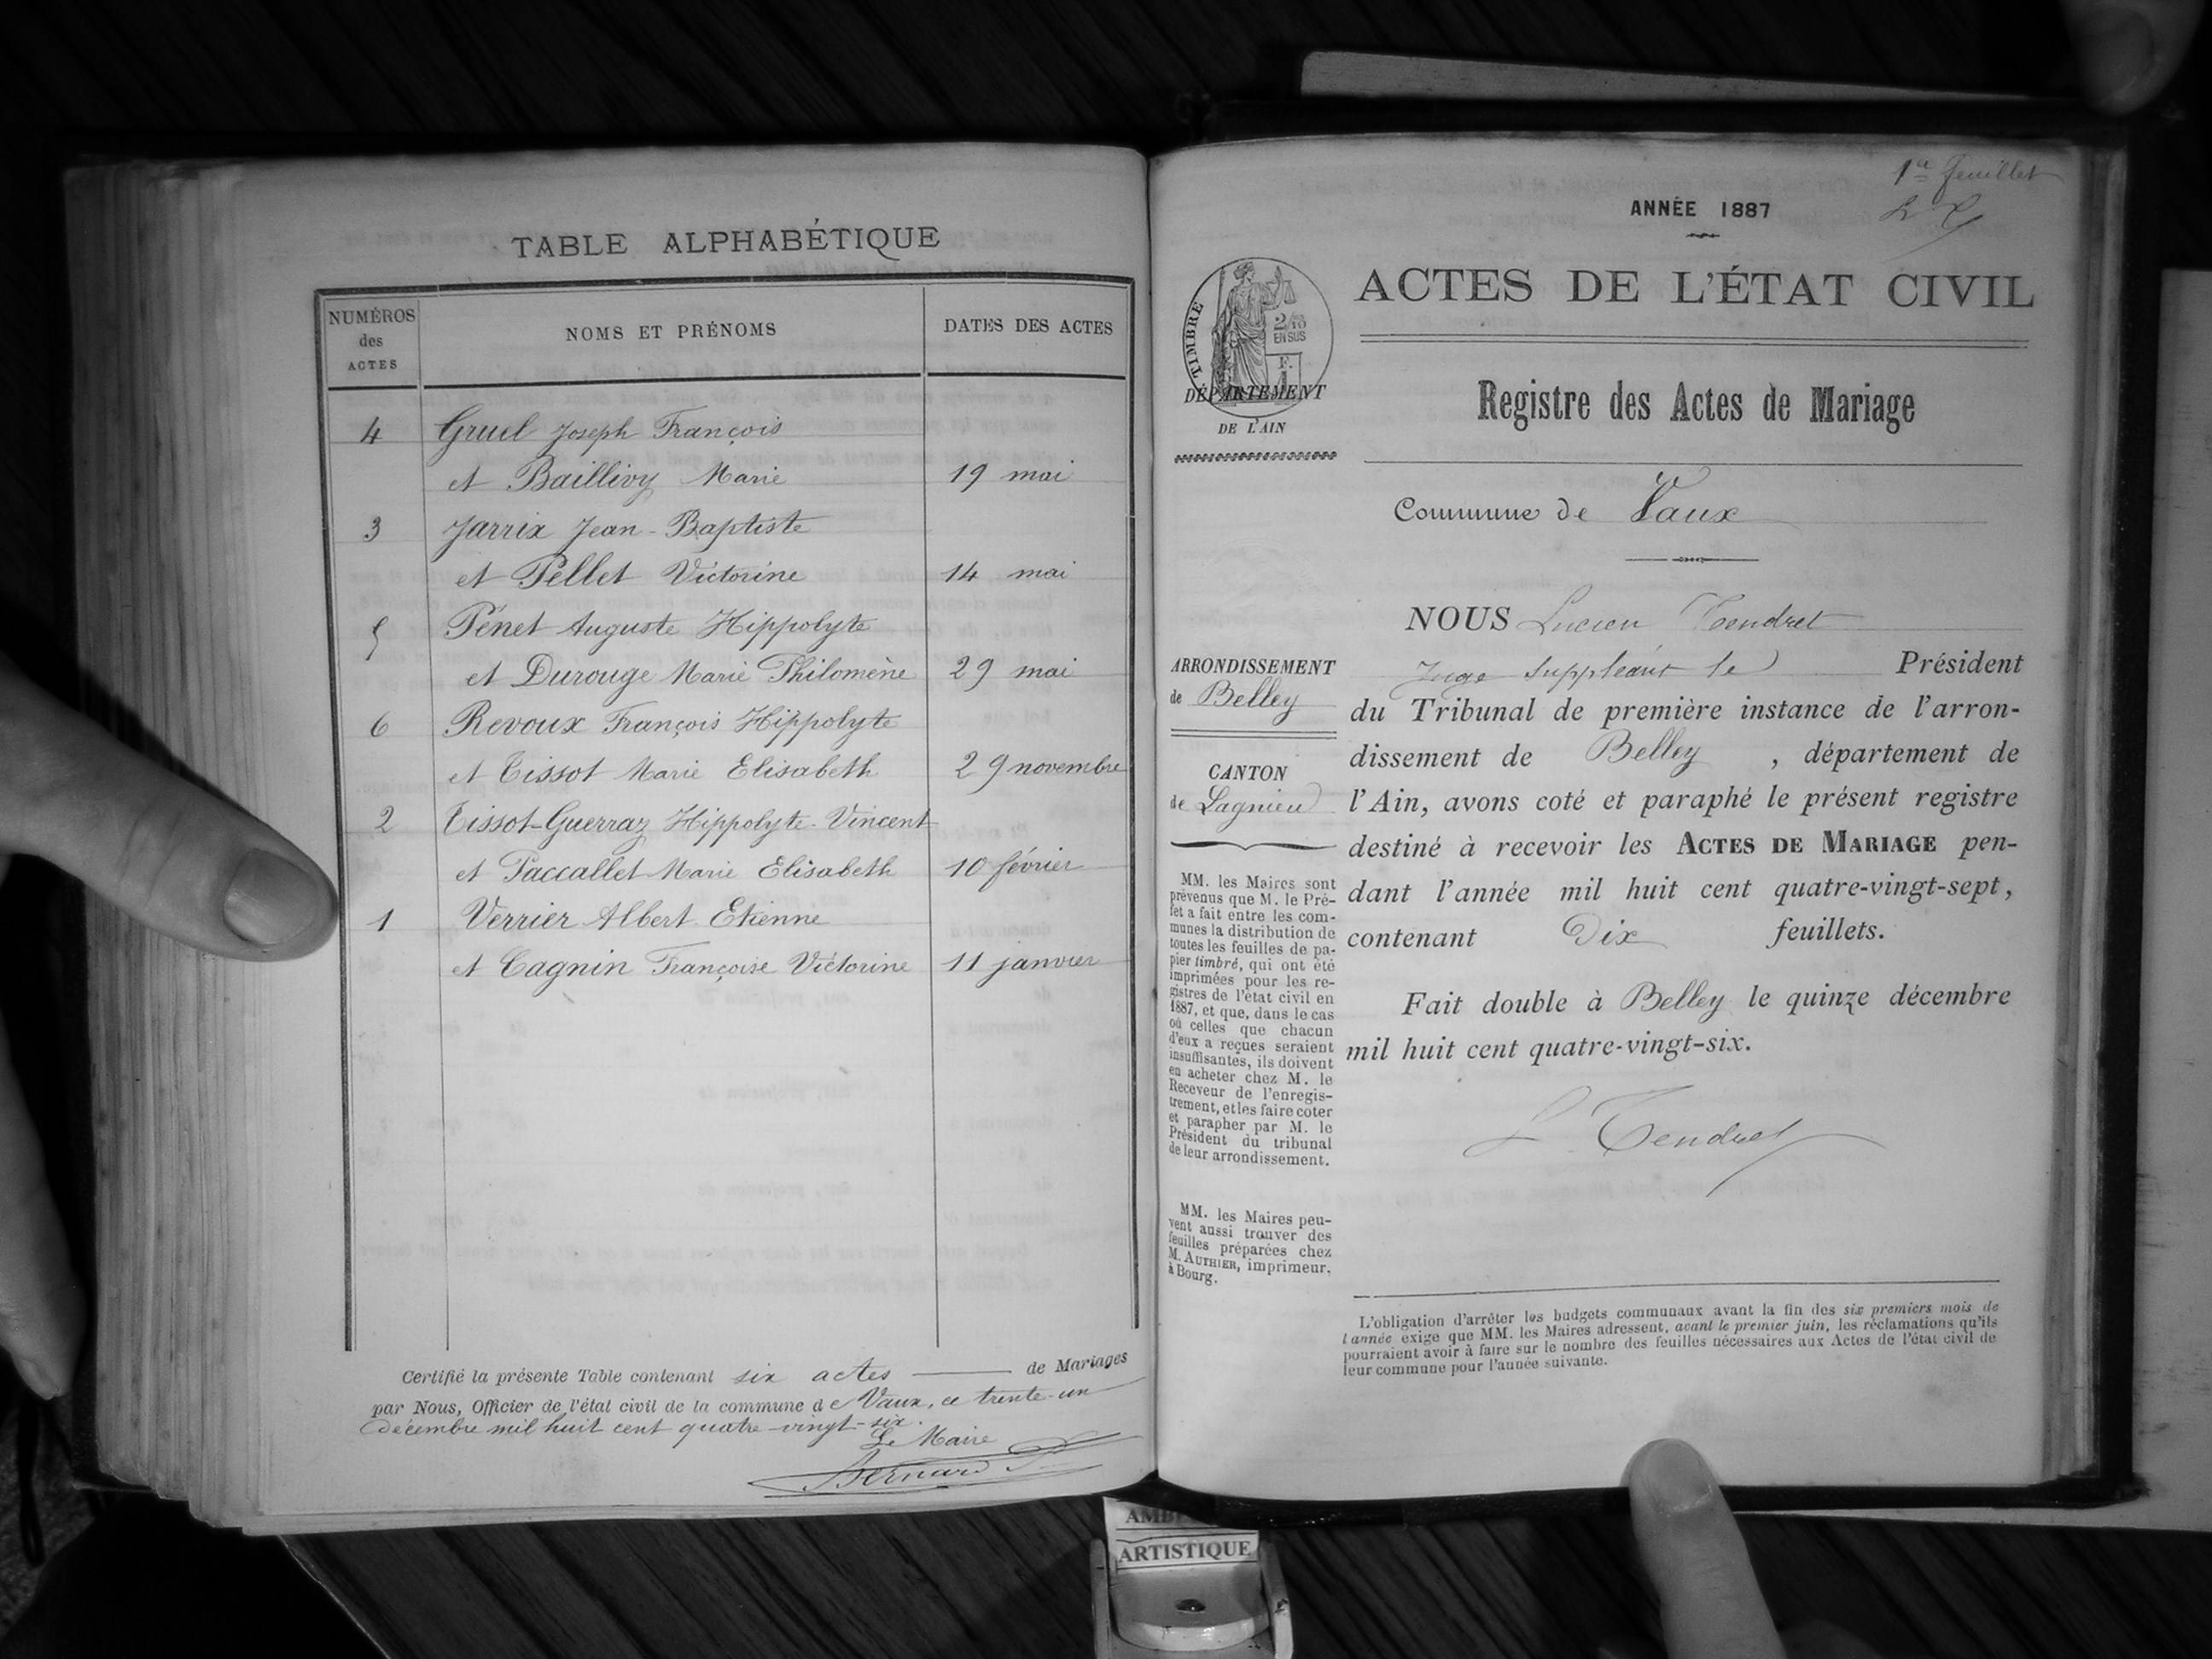 TABLE ALPHABÉTIQUE
NUMÉROS des ACTES
NOMS ET PRÉNOMS
DATES DES ACTES
4 Gruel Joseph François
et Baillivy Marie 19 mai
3 Jarrix Jean-Baptiste
et Pellet Victorine 14 mai
5 Pénet Auguste Hippolyte
et Durouge Marie Philomène 29 mai
6 Revoux François Hippolyte
et Tissot Marie Elisabeth 29 novembre
2 Tissot-Guerraz Hippolyte-Vincent
et Paccallet Marie Elisabeth 10 février
1 Verrier Albert Etienne
et Cagnin Françoise Victorine 11 janvier
Certifié la présente Table contenant six actes de Mariages
par Nous, Officier de l'état civil de la commune de Vaux, ce trente-un
décembre mil huit cent quatre-vingt-six.
Le Maire
Bernard
1er feuillet
ANNÉE 1887
ACTES DE L'ÉTAT CIVIL
TIMBRE
2/10
EN SUS
F.
1
DÉPARTEMENT
DE L'AIN
Registre des Actes de Mariage
Commune de Vaux
NOUS Lucien Tendret
Juge suppléant le Président
du Tribunal de première instance de l'arron-
dissement de Belley, département de
l'Ain, avons coté et paraphé le présent registre
destiné à recevoir les ACTES DE MARIAGE pen-
dant l'année mil huit cent quatre-vingt-sept,
contenant Dix feuillets.
Fait double à Belley le quinze décembre
mil huit cent quatre-vingt-six.
L Tendret
ARRONDISSEMENT
de Belley
CANTON
de Lagnieu
MM. les Maires sont
prévenus que M. le Pré-
fet a fait entre les com-
munes la distribution de
toutes les feuilles de pa-
pier timbré, qui ont été
imprimées pour les re-
gistres de l'état civil en
1887, et que, dans le cas
où celles que chacun
d'eux a reçues seraient
insuffisantes, ils doivent
en acheter chez M. le
Receveur de l'enregis-
trement, et les faire coter
et parapher par M. le
Président du tribunal
de leur arrondissement.
MM. les Maires peu-
vent aussi trouver des
feuilles préparées chez
M. AUTHIER, imprimeur,
à Bourg.
L'obligation d'arrêter les budgets communaux avant la fin des six premiers mois de
l'année exige que MM. les Maires adressent, avant le premier juin, les réclamations qu'ils
pourraient avoir à faire sur le nombre des feuilles nécessaires aux Actes de l'état civil de
leur commune pour l'année suivante.
ARTISTIQUE